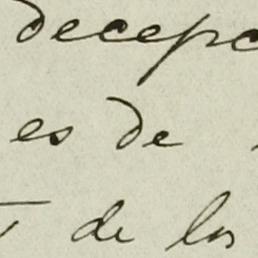 decepc
es de
de los